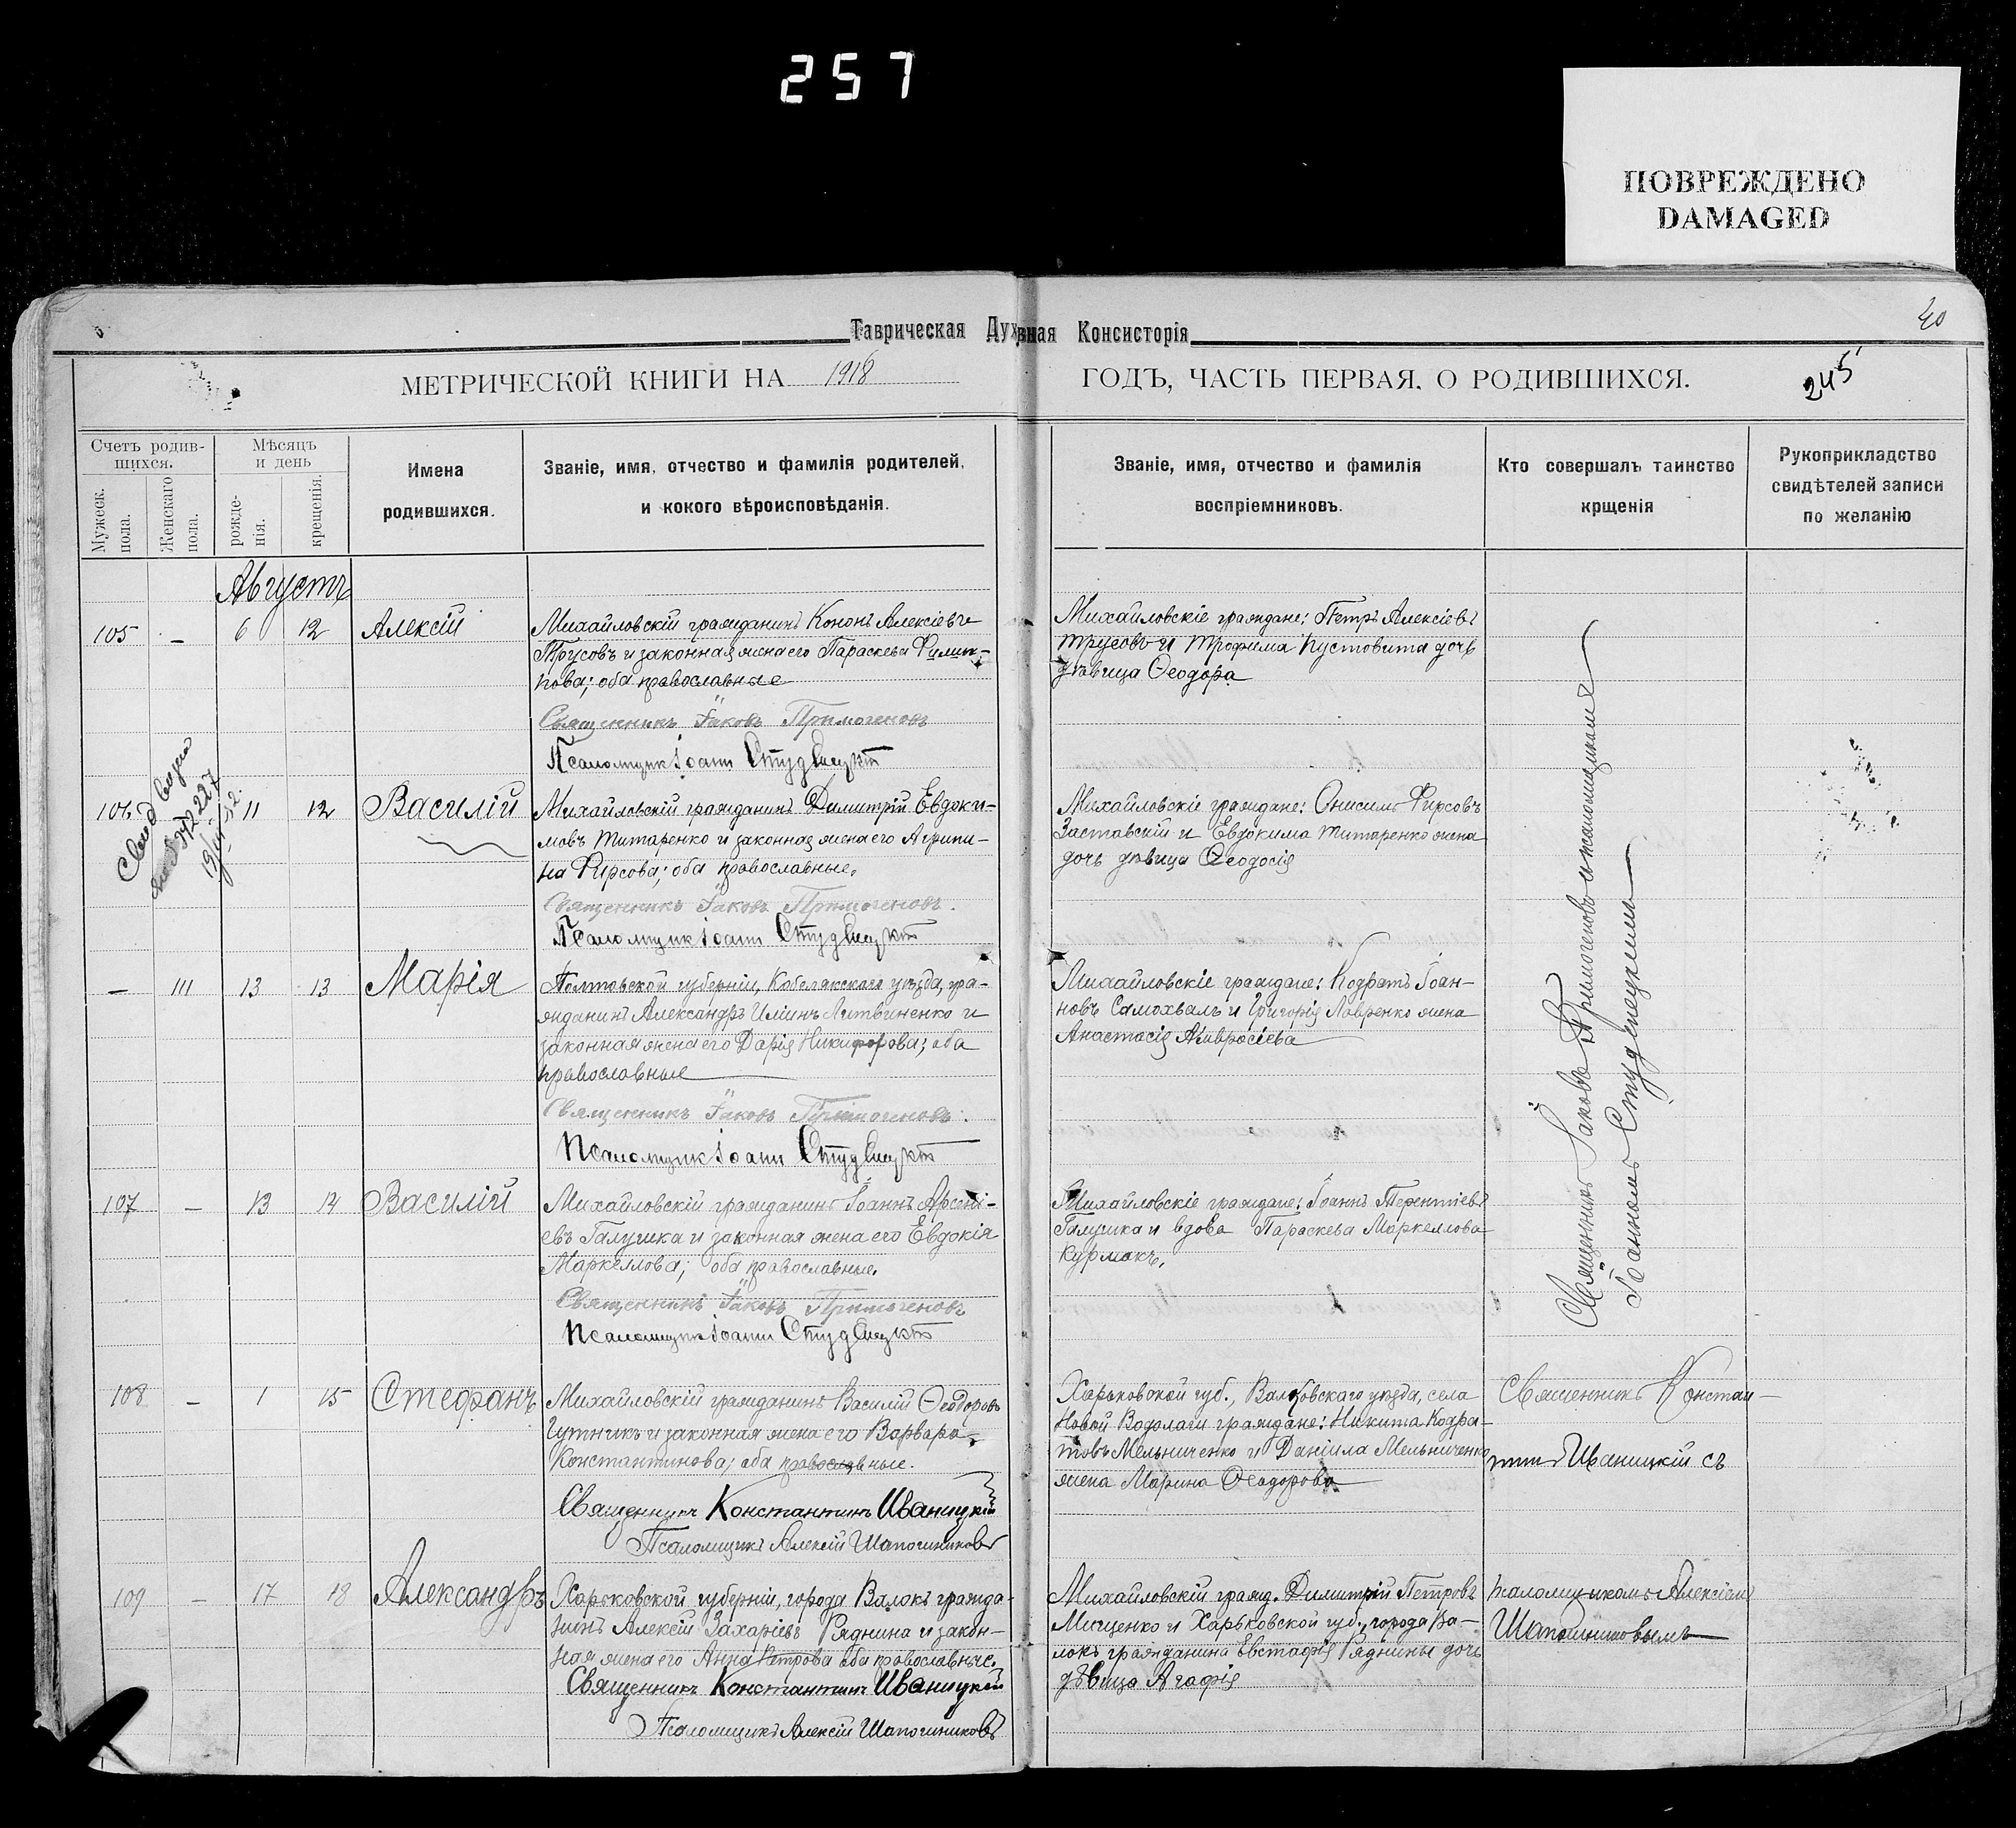 257
ПОВРЕЖДЕНО
DAMAGED
40
Таврическая Духвная Консисторія
МЕТРИЧЕСКОЙ КНИГИ НА 1918 ГОДЪ, ЧАСТЬ ПЕРВАЯ, О РОДИВШИХСЯ.
245
Счетъ родив-
шихся.
Мужеск.
пола.
Женскаго
пола.
Мѣсяцъ
и день
рожде-
нія.
крещенія.
Имена
родившихся.
Званіе, имя, отчество и фамилія родителей,
и кокого вѣроисповѣданія.
Званіе, имя, отчество и фамилія
воспріемниковъ.
Кто совершалъ таинство
крщенія
Рукоприкладство
свидѣтелей записи
по желанію
Августъ
105 – 6 12 Алексій
Михайловскій гражданинъ Кононъ Алексіевъ
Трусовъ и законная жена его Параскева Филип-
пова; оба православные
Священникъ Іаковъ Примогеновъ
Псаломщик Іоанн
Михайловскіе граждане: Петръ Алексіевъ
Трусовъ и Трофима Пустовита дочь
дѣвица Ѳеодора
106 11 12 Василій
Михайловскій гражданинъ Димитрій Евдоки-
мовъ Титаренко и законная жена его Агрипи-
на Фирсова; оба православные.
Священникъ Іаковъ Примогеновъ.
Псаломщик Іоанн
Михайловскіе граждане: Онисимъ Фирсовъ
Заставскій и Евдокима Титаренко жена
дочь дѣвица Ѳеодосія
– 111 13 13 Марія
Полтавской губерніи, Кобелякскаго уѣзда, гра-
жданинъ Александръ Иліинъ Литвиненко и
законная жена его Дарія Никифорова; оба
православные
Священникъ Іаковъ Примогеновъ.
Псаломщик Іоанн
Михайловскіе граждане: Кодратъ Іоан-
новъ Самохвалъ и Григорія Лавренко жена
Анастасія Амвросіева
107 – 13 14 Василій
Михайловскій гражданинъ Іоаннъ Арсені-
евъ Галушка и законная жена его Евдокія
Маркеллова; оба православные.
Священникъ Іаковъ Примогеновъ
Псаломщик Іоанн
Михайловскіе граждане: Іоаннъ Терентіевъ
Галушка и вдова Параскева Маркеллова
Курмакъ.
Священникъ Іаковъ Примогеновъ съ псаломщикомъ
Іоанномъ
108 – 1 15 Стефанъ
Михайловскій гражданинъ Василій Ѳеодоровъ
Гутникъ и законная жена его Варвара
Константинова; оба православные.
Священникъ Константинъ Иваницкій
Псаломщикъ Алексій Шапошниковъ
Харьковской губ., Валковскаго уѣзда, села
Новой Водолаги граждане: Никита Кодра-
товъ Мельниченко и Даніила Мельниченко
жена Марина Ѳеодорова
Священникъ Констан-
тинъ Иваницкій съ
109 – 17 18 Александръ
Харьковской губерніи, города Валокъ гражда-
нинъ Алексій Захаріевъ Ряднина и закон-
ная жена его Анна Петрова оба православные.
Священникъ Константинъ Иваницкій
Псаломщикъ Алексій Шапошниковъ
Михайловскій гражд. Димитрій Петровъ
Мищенко и Харьковской губ., города Ва-
локъ гражданина Евстафія Ряднины дочь
дѣвица Агафія
псаломщикомъ Алексіемъ
Шапошниковымъ